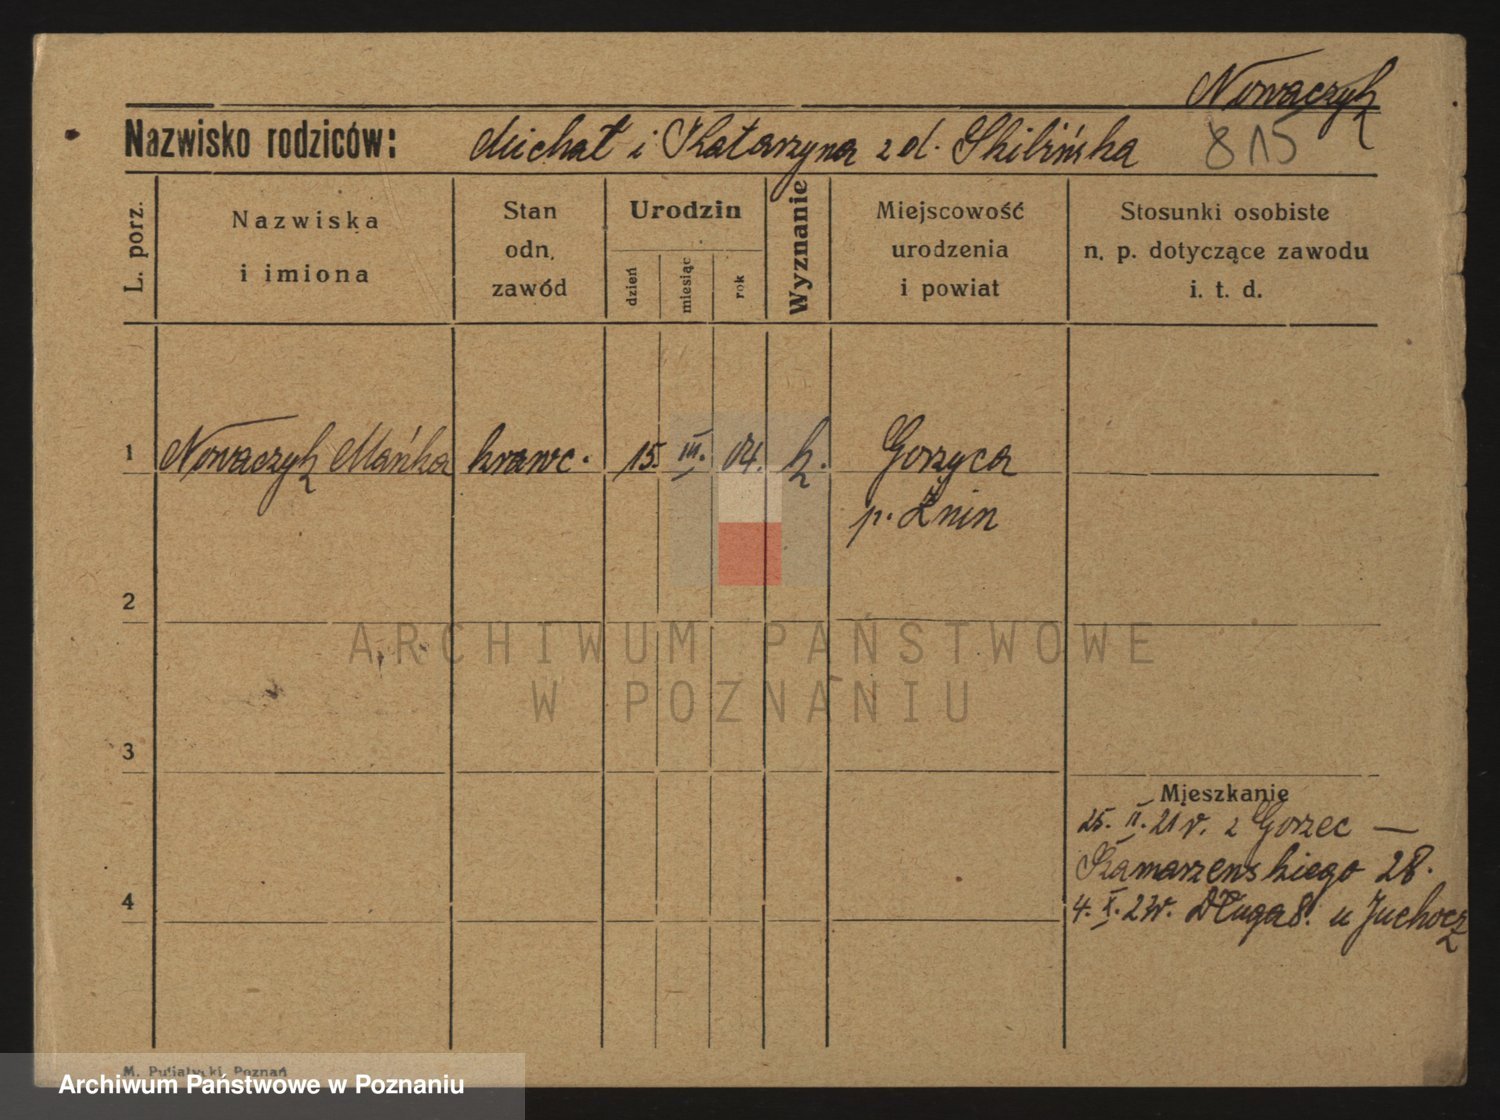 Nowaczyk
Nazwisko rodziców: Michał i Katarzyna z d. Skibińska 815
L. porz.
Nazwiska
i imiona
Stan
odn.
zawód
Urodzin
dzień
miesiąc
rok
Wyznanie
Miejscowość
urodzenia
i powiat
Stosunki osobiste
n. p. dotyczące zawodu
i. t. d.
1 Nowaczyk Mańka krawc. 15. III. 04. k. Gorzyca
p. Żnin
2
ARCHIWUM PAŃSTWOWE
W POZNANIU
3
Mieszkanie
25. II. 21 r. z Gorzec —
28.
4
4. X. 23 r. Długa 8. u
M. Poznań
Archiwum Państwowe w Poznaniu